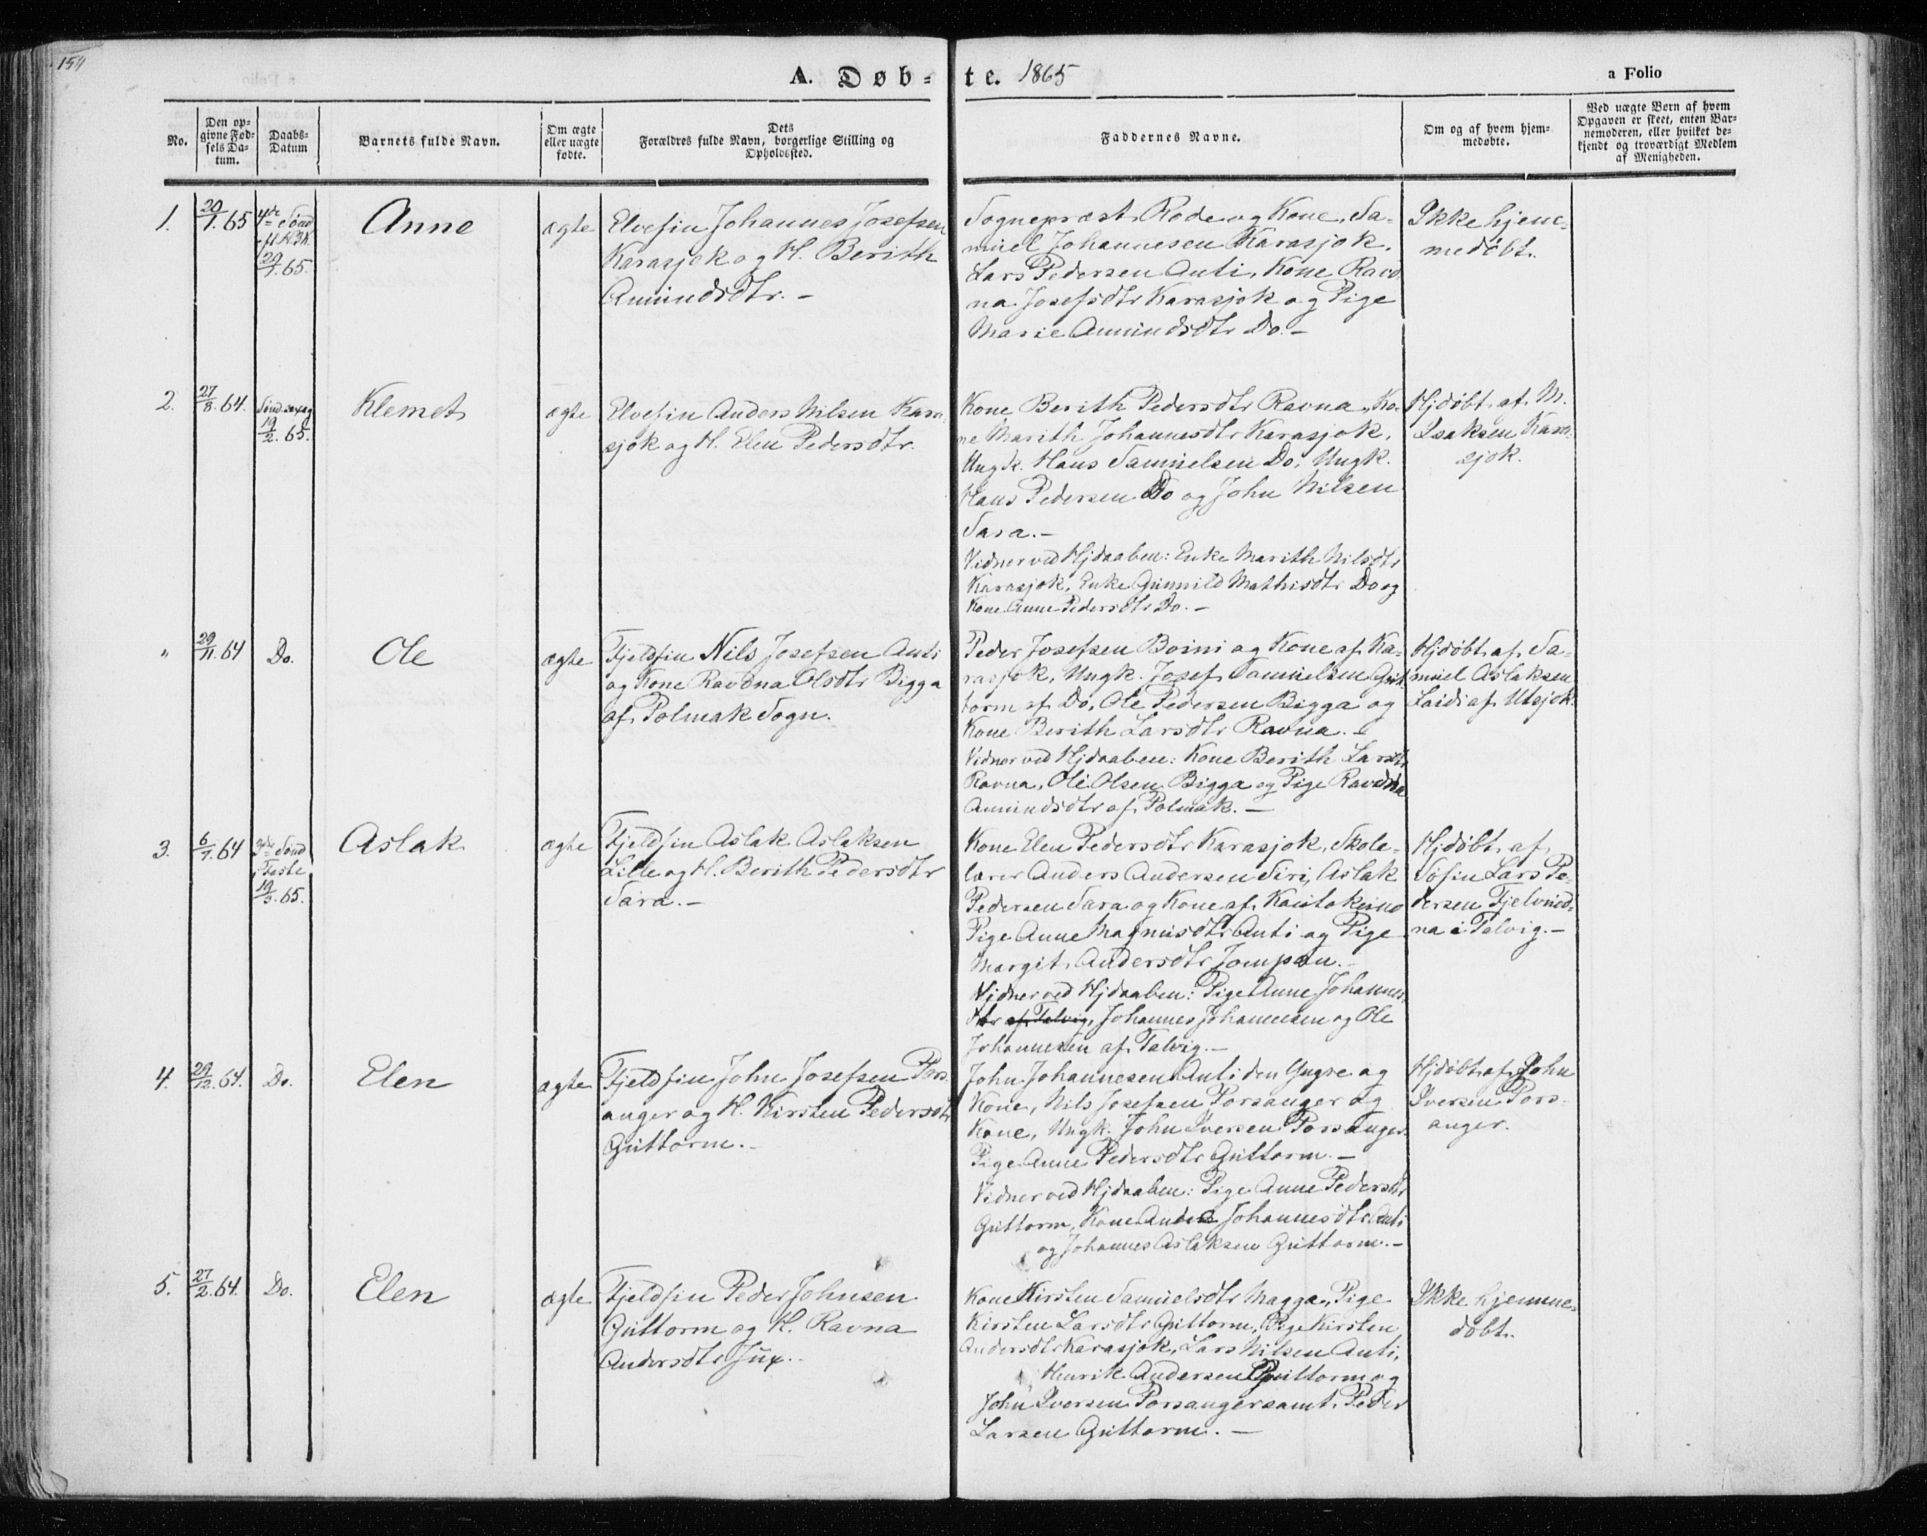 154
A. Døb-
te. 1865
a Folio
No.
Den op-
givne Fød-
sels Da-
tum.
Daabs-
Datum
Barnets fulde Navn.
Om ægte
eller uægte
fødte.
Dets
Forældres fulde Navn, borgerlige Stilling og
Opholdssted.
Faddernes Navne.
Om og af hvem hjem-
medøbte.
Ved uægte Børn af hvem
Opgaven er skeet, enten Bar-
nemoderen, eller hvilket be-
kjendt og troværdigt Medlem
af Menigheden.
1.
20/1. 65
4de Sønd
29/1. 65.
Anne
ægte
Elvefin Johannes Josefsen
Karasjok og H. Berith
Amundsdtr. -
Sognepræst Rode og Kone, Sa-
muel Johannesen Karasjok,
Lars Pedersen Anti, Kone Rav-
na Josefsdtr Karasjok og Pige
Marie Amundsdtr Do. -
Ikke hjem-
medøbt.
2.
27/8. 64.
19/2. 65.
Klemet
ægte
Elvefin Anders Nilsen Kara-
sjok og H. Elen Pedersdtr.
Kone Berith Pedersdtr Ravna, Ko-
ne Marith Johannesdtr Karasjok,
Ungk. Hans Samuelsen Do, Ungk.
Hans Pedersen Do og John Nilsen
Sara. -
Vidner ved Hjdaaben: Enke Marith Nilsdtr
Karasjok, Enke Gunnild Mathisdtr Do og
Kone Anne Pedersdtr Do. -
Hjdøbt af M.
Isaksen Kara-
sjok.
"
29/11. 64
Do.
Ole
ægte
Fjeldfin Nils Josefsen Anti
og Kone Ravdna Olsdtr Bigga
af Polmak Sogn.
Peder Josefsen Boini og Kone af Ka-
rasjok, Ungk. Josef Samuelsen Gut-
torm af Do, Ole Pedersen Bigga og
Kone Berith Larsdtr Ravna. -
Vidner ved Hjdaaben: Kone Berith Larsdtr
Ravna, Ole Olsen Bigga og Pige Ravdna
Amundsdtr af Polmak. -
Hjdøbt af Sa-
muel Aslaksen
Laidi af Utsjok.
3.
6/7. 64
3die Sønd
Faste
19/3. 65.
Aslak
ægte
Fjeldfin Aslak Aslaksen
Lille og H. Berith Pedersdtr
Sara. -
Kone Elen Pedersdtr Karasjok, Skole-
lærer Anders Andersen Siri, Aslak
Pedersen Sara og Kone af Kautokeino
Pige Anne Magnusdtr Anti og Pige
Margit Andersdtr Jompan. -
Vidner ved Hjdaaben: Pige Anne Johannes-
dtr af Talvig, Johannes Johannesen og Ole
Johannesen af Talvig. -
Hjdøbt af
Søfin Lars Pe-
dersen
na i Talvig. -
4.
29/12. 64.
Do.
Elen
ægte
Fjeldfin John Josefsen Pors-
anger og H. Kirsten Pedersdtr
Guttorm. -
John Johannesen Anti den Yngre og
Kone, Nils Josefsen Porsanger og
Kone, Ungk. John Iversen Porsanger
Pige Anne Pedersdtr Guttorm. -
Vidner ved Hjdaaben: Pige Anne Pedersdtr
Guttorm, Kone Johannesdtr Anti
og Johannes Aslaksen Guttorm. -
Hjdøbt af John
Iversen Pors-
anger.
5.
27/2. 64.
Do.
Elen
ægte
Fjeldfin Peder Johnsen
Guttorm og H. Ravna
Andersdtr Jux. -
Kone Kirsten Samuelsdtr Magga, Pige
Kirsten Larsdtr Guttorm, Pige Kirsten
Andersdtr Karasjok, Lars Nilsen Anti,
Henrik Andersen Guttorm og
John Iversen Porsanger samt Peder
Larsen Guttorm. -
Ikke hjemme-
døbt.